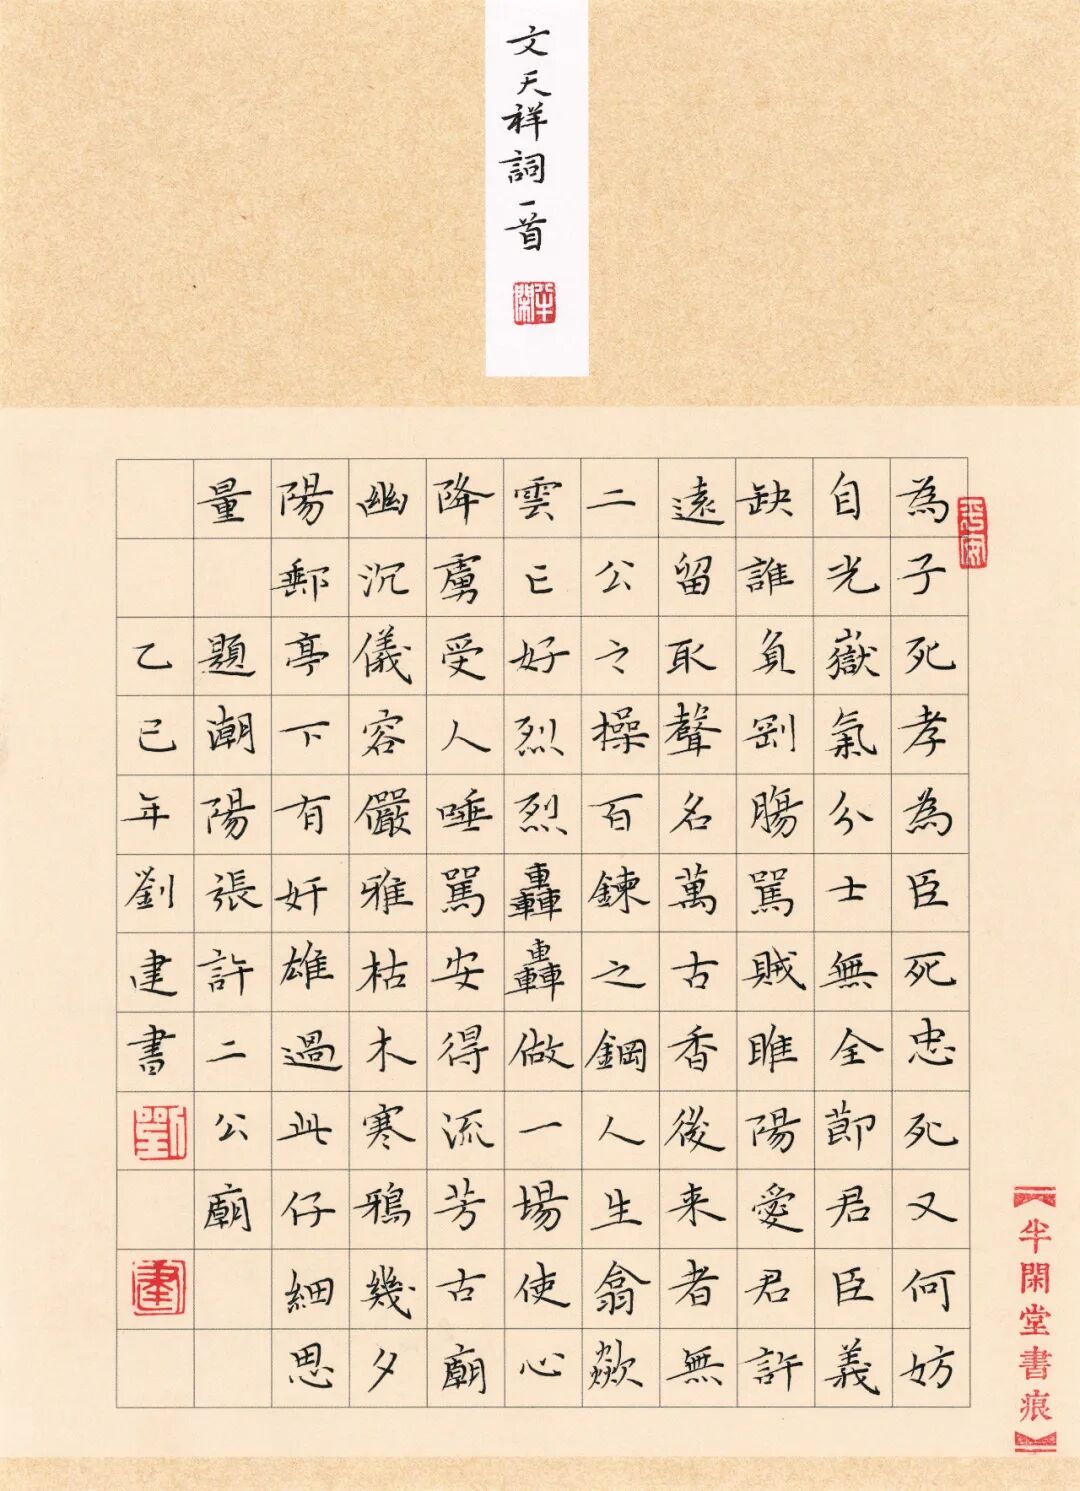 文天祥詞一首
半閑
為子死孝為臣死忠死又何妨
自光嶽氣分士無全節君臣義
缺誰負剛腸罵賊睢陽愛君許
遠留取聲名萬古香後来者無
二公之操百鍊之鋼人生翕歘
雲亡好烈烈轟轟做一場使心
降虜受人唾罵安得流芳古廟
幽沉儀容儼雅枯木寒鴉幾夕
陽郵亭下有奸雄過此仔細思
量 題潮陽張許二公廟
乙巳年劉建書
劉
建
平安
【半閑堂書痕】